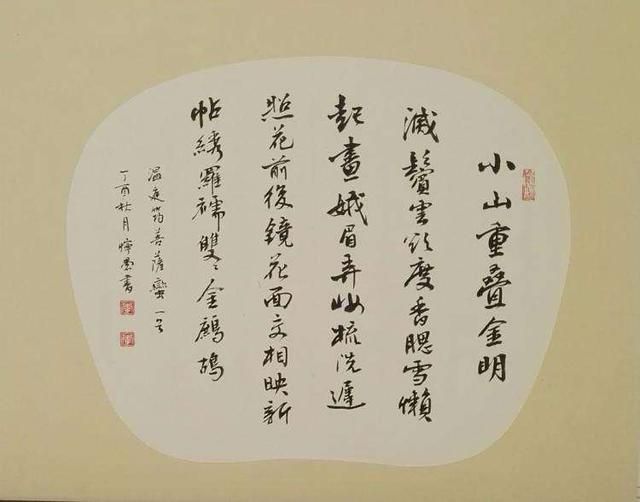 小山重叠金明
滅鬢雲欲度香腮雪懶
起畫娥眉弄妝梳洗遲
照花前後鏡花面交相映新
帖綉羅襦雙〻金鷓鴣
温庭筠菩薩蠻一首
丁酉秋月 書